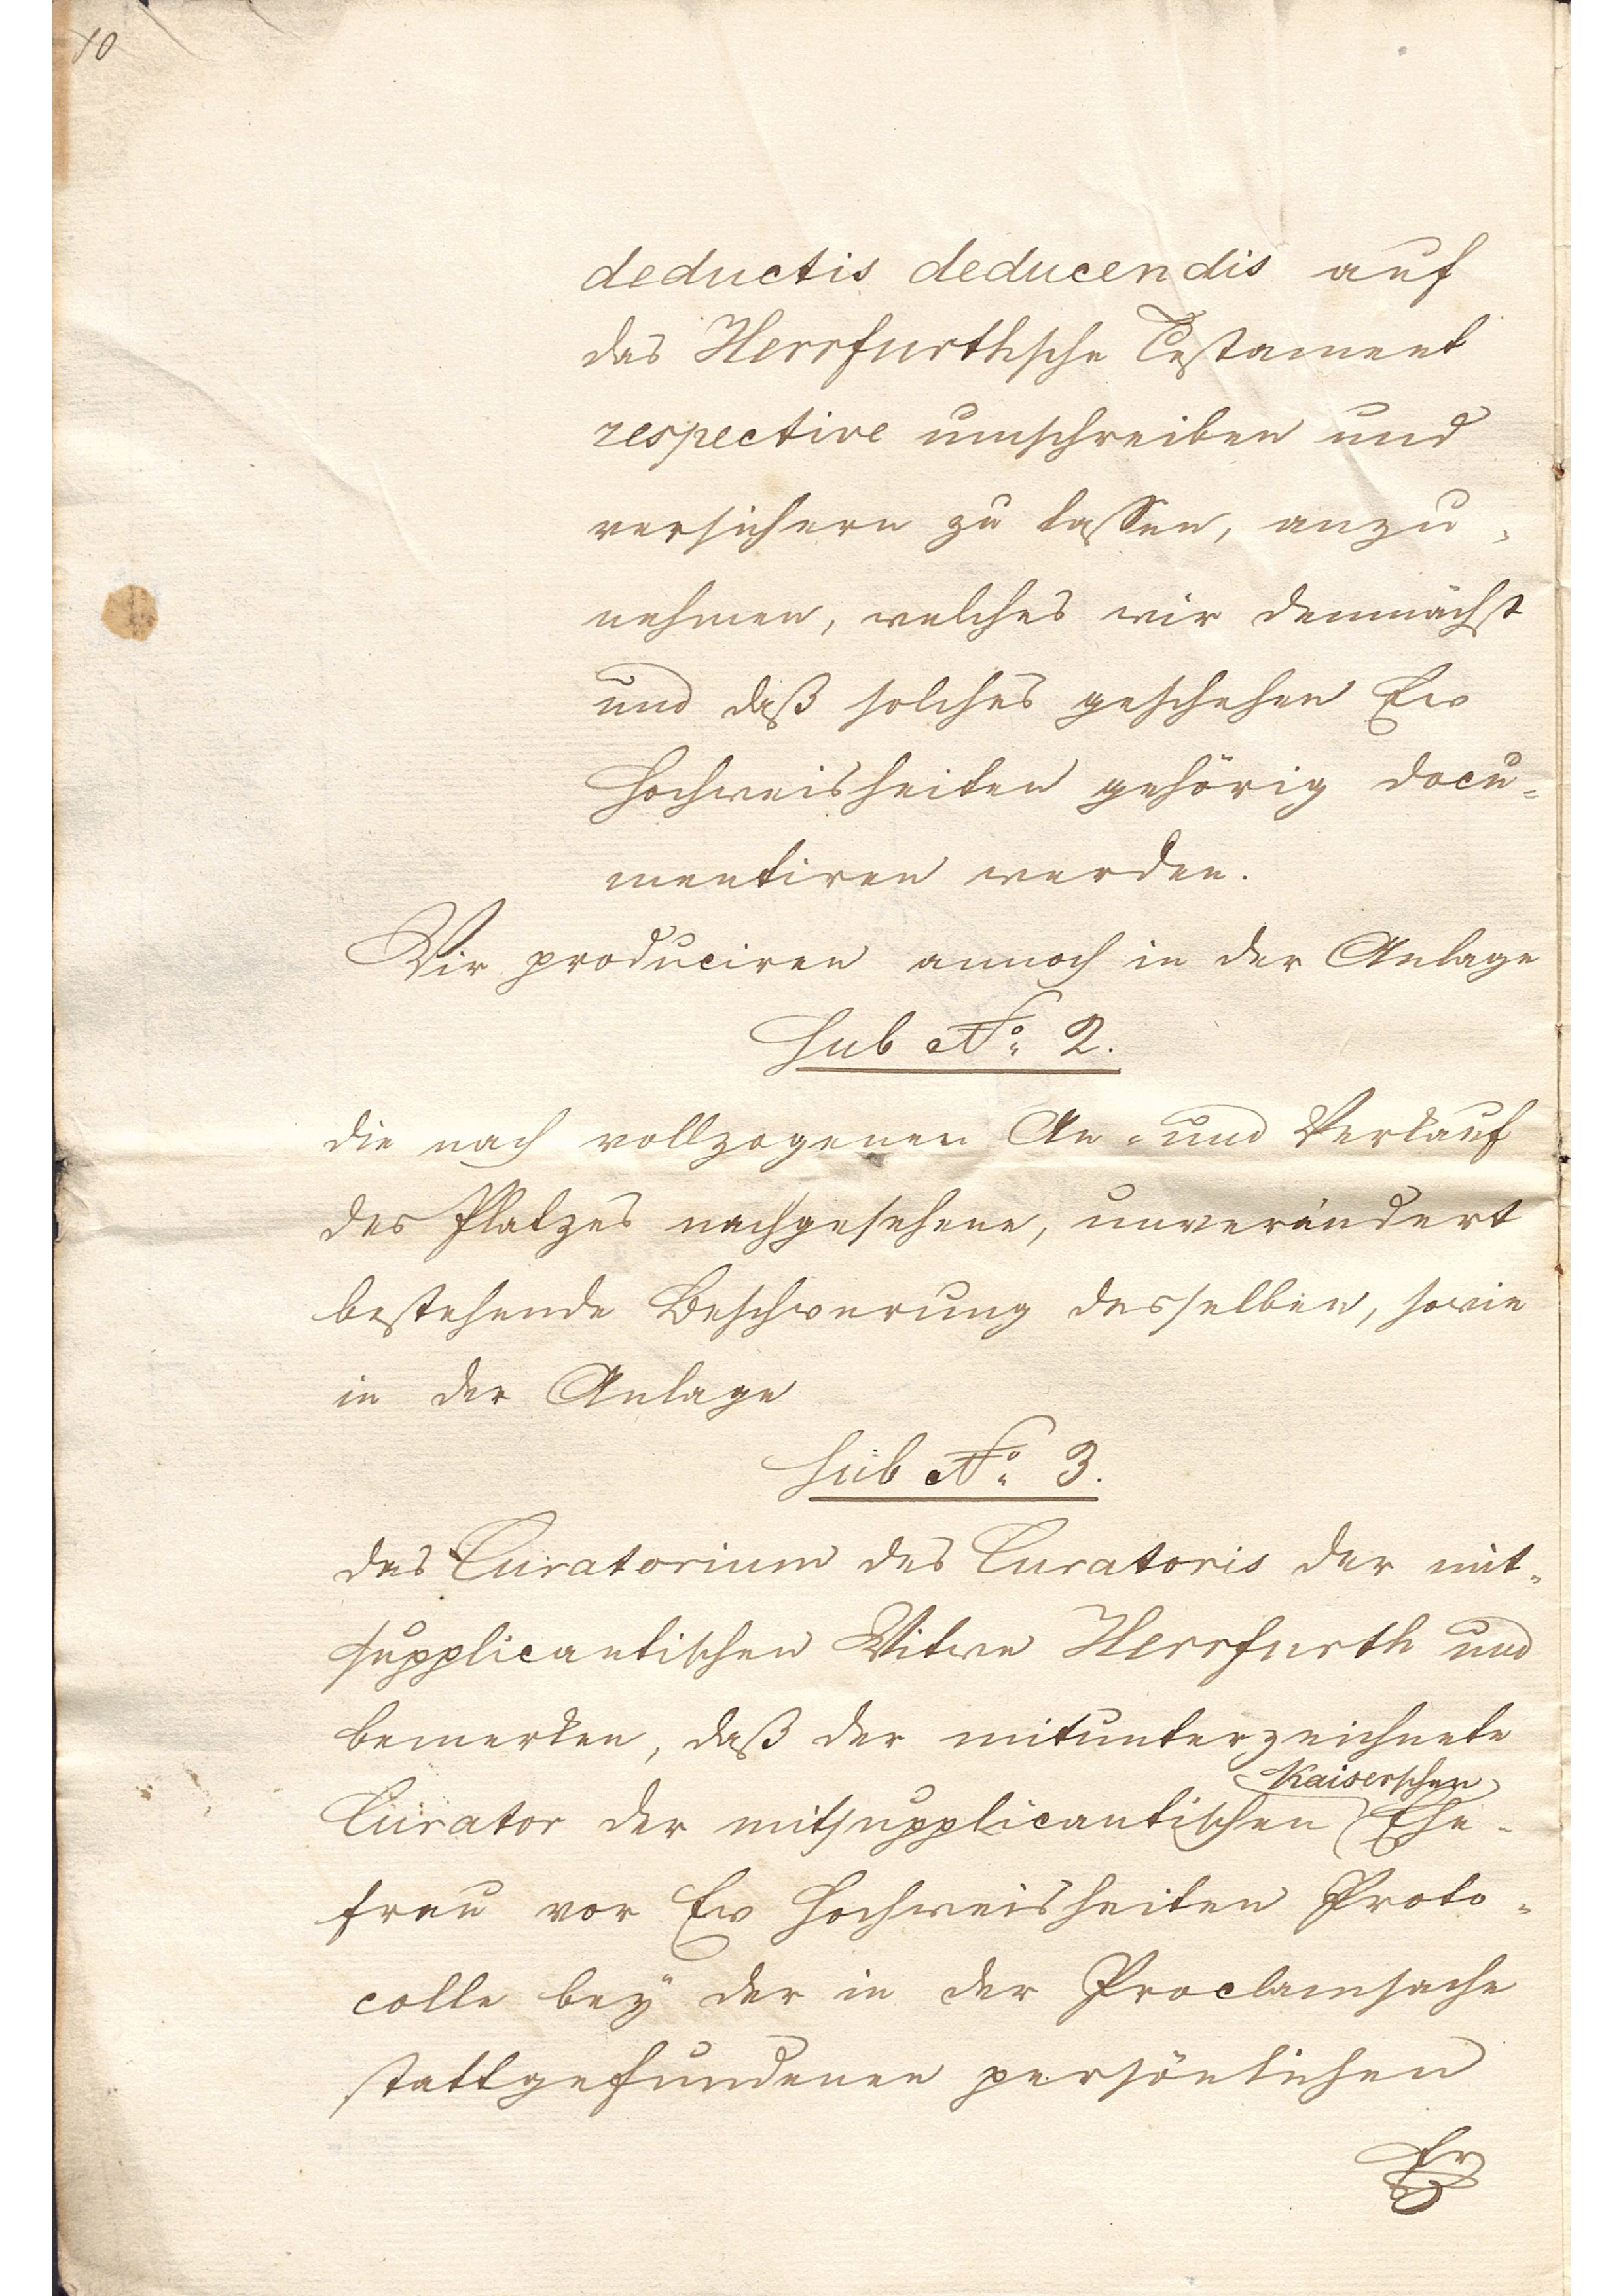 10
deductis deducendis auf
das Herrfurthsche Testament
respective umschreiben und
versichern zu lassen, anzu-
nehmen, welches wir demnächst
und daß solches geschehen Ew
Hochweisheiten gehörig docu-
mentiren werden.
Wir produciren annoch in der Anlage
sub No. 2.
die nach vollzogenen An- und Verkauf
des Platzes nachgesehene, unverändert
bestehende Beschwerung desselben, sowie
in der Anlage
sub No. 3.
das Curatorium des Curatoris der mit-
supplicantischen Witwe Herrfurth und
bemerken, daß der mitunterzeichnete
Kaiserschen
Curator der mitsupplicantischen Ehe-
frau vor Ew Hochweisheiten Proto-
colle bey der in der Proclamsache
stattgefundenen persönlichen
Er